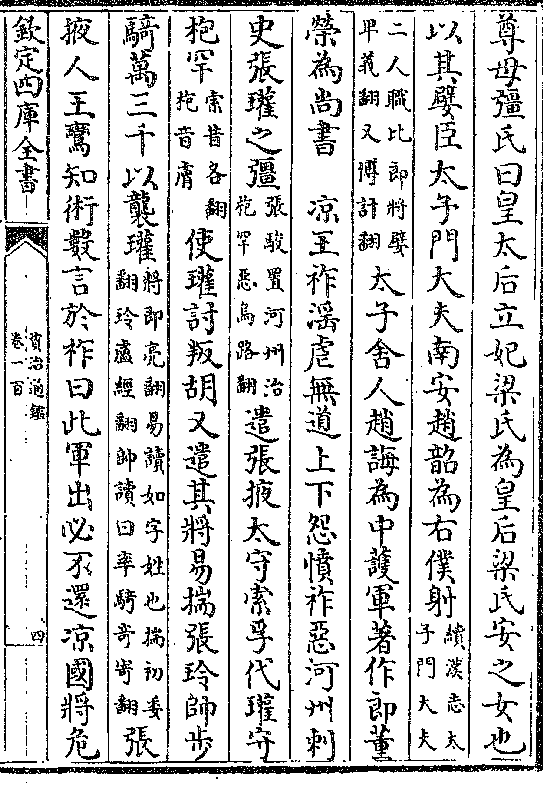 尊母彊氏曰皇太后立妃梁氏為皇后梁氏安之女也
以其嬖臣太子門大夫南安趙韶為右僕射
續漢志太
子門大夫
二人職比郎將嬖
卑義翻又博計翻
太子舍人趙誨為中護軍著作郎董
榮為尚書　凉王祚滛虐無道上下怨憤祚惡河州刺
史張瓘之彊
張駿置河州治
枹罕惡烏路翻
遣張掖太守索孚代瓘守
枹罕
索昔各翻
枹音膚
使瓘討叛胡又遣其將易揣張玲帥步
騎萬三千以襲瓘
將即亮翻易讀如字姓也揣初委
翻玲盧經翻帥讀曰率騎奇寄翻
張
掖人王鸞知術數言於祚曰此軍出必不還凉國將危
欽定四庫全書
資治通鑑
卷一百
四